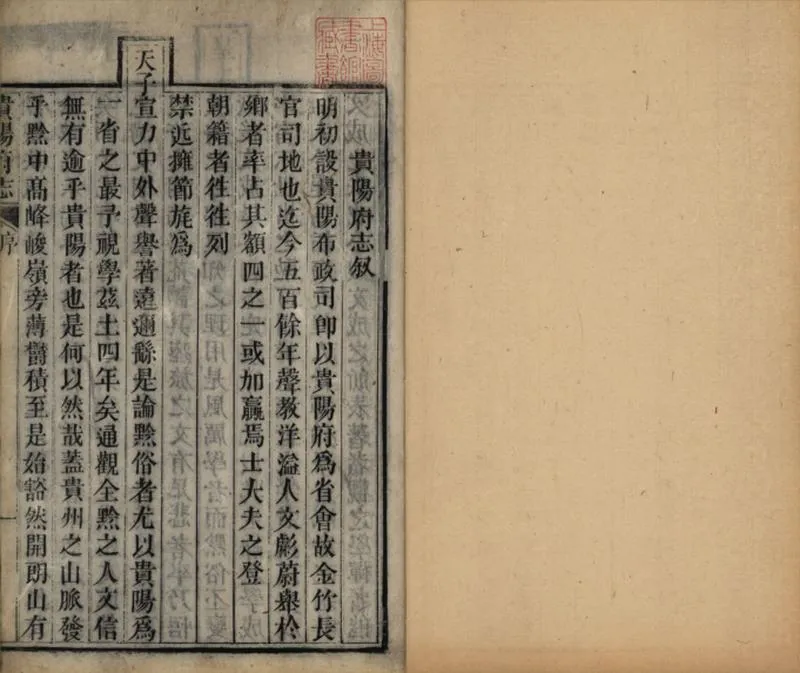 上海圖書館藏書
貴陽府志敘
明初設貴陽布政司卽以貴陽府爲省會故金竹長
官司地也迄今五百餘年聲教洋溢人文彪蔚舉於
鄉者率占其額四之一或加贏焉士大夫之登
朝籍者徃徃列
禁近擁節旄爲
天子宣力中外聲譽著遠邇繇是論黔俗者尤以貴陽爲
一省之最予視學茲土四年矣通觀全黔之人文信
無有逾乎貴陽者也是何以然哉蓋貴州之山脈發
乎黔中高峰峻嶺旁薄鬱積至是始豁然開朗山有
貴陽府志
序
一